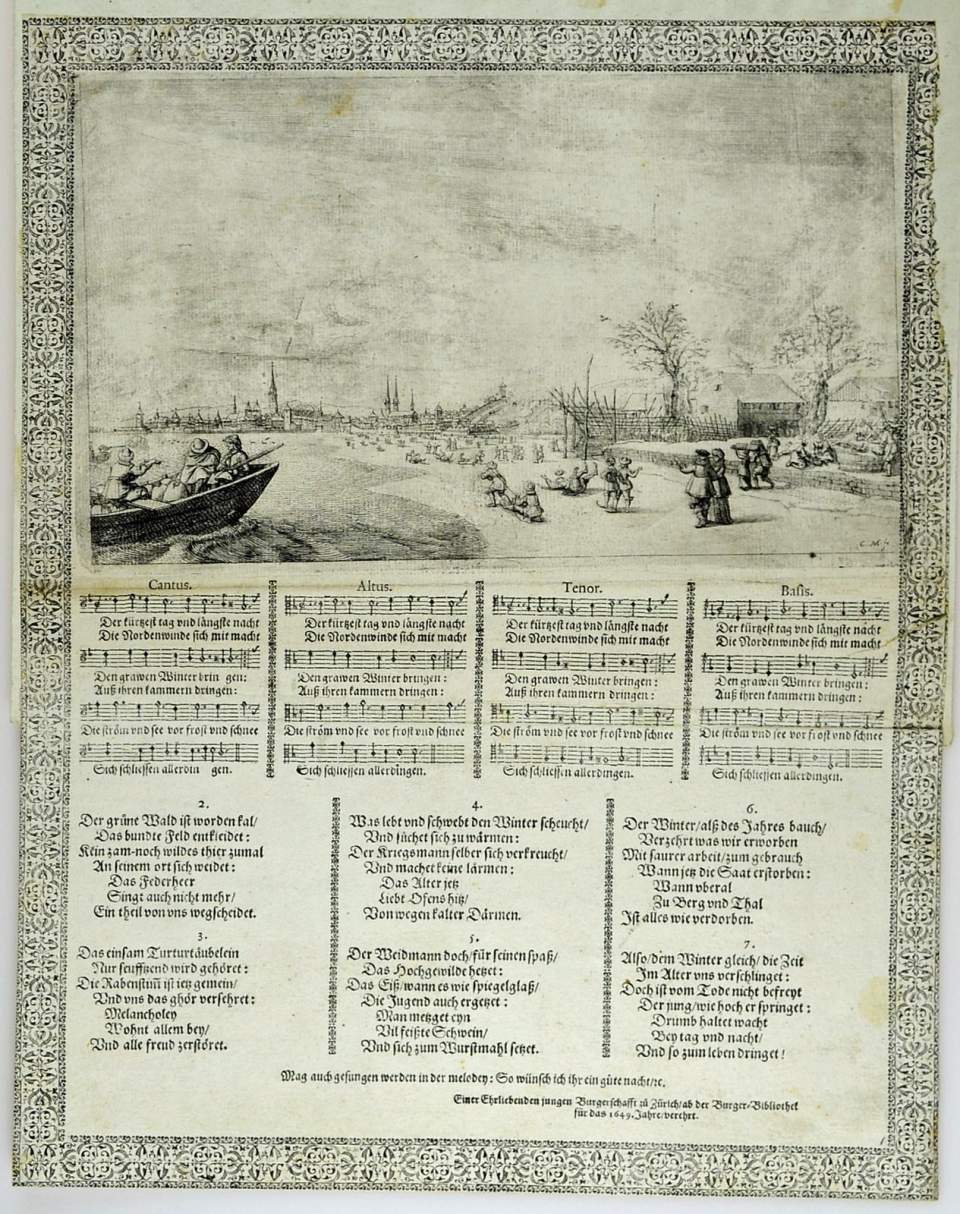 C. M. f.
Cantus.
Der kürtzest tag vnd längste nacht
Die Nordenwinde sich mit macht
Den grawen Winter brin gen:
Auß ihren kammern dringen:
Die ström vnd see vor frost vnd schnee
Sich schliessen allerdin gen.
Altus.
Der kürtzest tag vnd längste nacht
Die Nordenwinde sich mit macht
Den grawen Winter bringen:
Auß ihren kammern dringen:
Die ström vnd see vor frost vnd schnee
Sich schliessen allerdingen.
Tenor.
Der kürtzest tag vnd längste nacht
Die Nordenwinde sich mit macht
Den grawen Winter bringen:
Auß ihren kammern dringen:
Die ström vnd see vor frost vnd schnee
Sich schliessen allerdingen.
Basis.
Der kürtzest tag vnd längste nacht
Die Nordenwinde sich mit macht
Den grawen Winter bringen:
Auß ihren kammern dringen:
Die ström vnd see vor frost vnd schnee
Sich schliessen allerdingen.
2.
Der grüne Wald ist worden kal/
Das bundte Feld entkleidet:
Kein zam-noch wildes thier zumal
An seinem ort sich weidet:
Das Federheer
Singt auch nicht mehr/
Ein theil von vns wegscheidet.
3.
Das einsam Turturtäubelein
Nur seufftzend wird gehöret:
Die Rabenstim̃ ist jetz gemein/
Vnd vns das ghör versehret:
Melancholey
Wohnt allem bey/
Vnd alle freud zerstöret.
4.
Was lebt vnd schwebt den Winter scheucht/
Vnd suchet sich zu wärmen:
Der Kriegsmann selber sich verkreucht/
Vnd machet keine lärmen:
Das Alter jetz
Liebt Ofens hitz/
Von wegen kalter Därmen.
5.
Der Weidmann doch/für seinen spaß/
Das Hochgewilde hetzet:
Das Eiß/wann es wie spiegelglaß/
Die Jugend auch ergetzet:
Man metzget eyn
Vil feißte Schwein/
Vnd sich zum Wurstmahl setzet.
6.
Der Winter/alß des Jahres bauch/
Verzehrt was wir erworben
Mit saurer arbeit/zum gebrauch
Wann jetz die Saat erstorben:
Wann vberal
Zu Berg vnd Thal
Ist alles wie verdorben.
7.
Also/dem Winter gleich/die Zeit
Im Alter vns verschlinget:
Doch ist vom Tode nicht befreyt
Der jung/wie hoch er springet:
Drumb haltet wacht
Bey tag vnd nacht/
Vnd so zum leben dringet!
Mag auch gesungen werden in der melodey: So wünsch ich ihr ein gute nacht/ꝛc.
Einer Ehrliebenden jungen Burgerschafft zů Zürich/ab der Burger-Bibliothek
für das 1649. Jahre/verehrt.